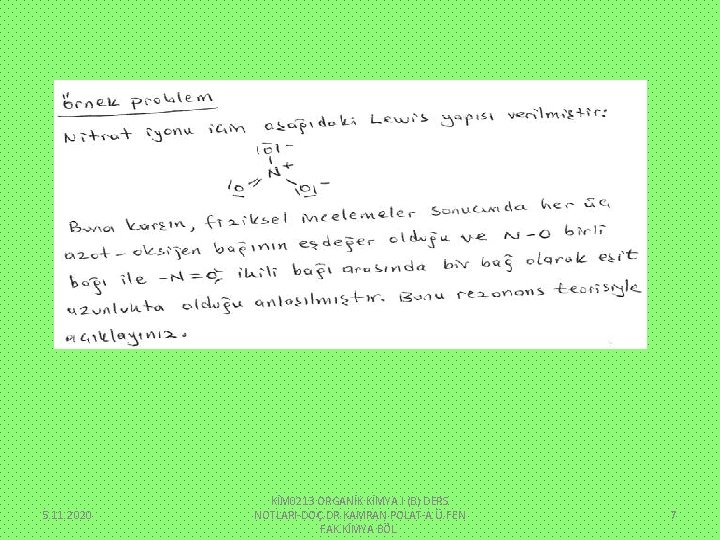 örnek problem
Nitrat iyonu için aşağıdaki Lewis yapısı verilmiştir:
|Ō|⁻
N⁺
|O |O|⁻
Buna karşın, fiziksel incelemeler sonucunda her üç
azot-oksijen bağının eşdeğer olduğu ve N-O birli
bağı ile -N=O ikili bağı arasında bir bağ olarak eşit
uzunlukta olduğu anlaşılmıştır. Bunu rezonans teorisiyle
açıklayınız.
5.11.2020
KİM0213 ORGANİK KİMYA I (B) DERS
NOTLARI-DOÇ.DR.KAMRAN POLAT-A.Ü.FEN
FAK.KİMYA BÖL
7